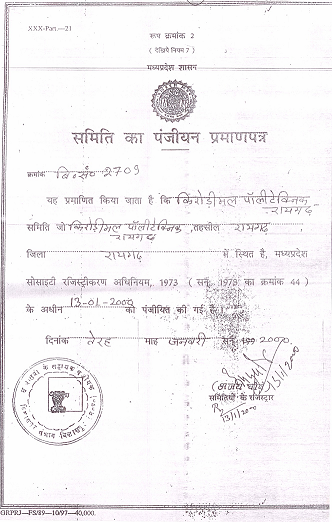 XXX-Part.—21
रूप क्रमांक 2
( देखिये नियम 7 )
मध्यप्रदेश शासन
समिति का पंजीयन प्रमाणपत्र
क्रमांक बि.सं० 2709
यह प्रमाणित किया जाता है कि किरोड़ीमल पॉलीटेक्निक
रायगढ़
समिति जो किरोड़ीमल पॉलीटेक्निक, तहसील रायगढ़
रायगढ़
जिला रायगढ़ में स्थित है, मध्यप्रदेश
सोसाइटी रजिस्ट्रीकरण अधिनियम, 1973 ( सन् 1973 का क्रमांक 44 )
के अधीन 13-01-2000 को पंजीयित की गई है।
दिनांक तेरह माह जनवरी सन् 2000.
13/1/2000
समितियों के रजिस्ट्रार
13/1/2000
GRPRJ—FS/89—10/97—40,000.